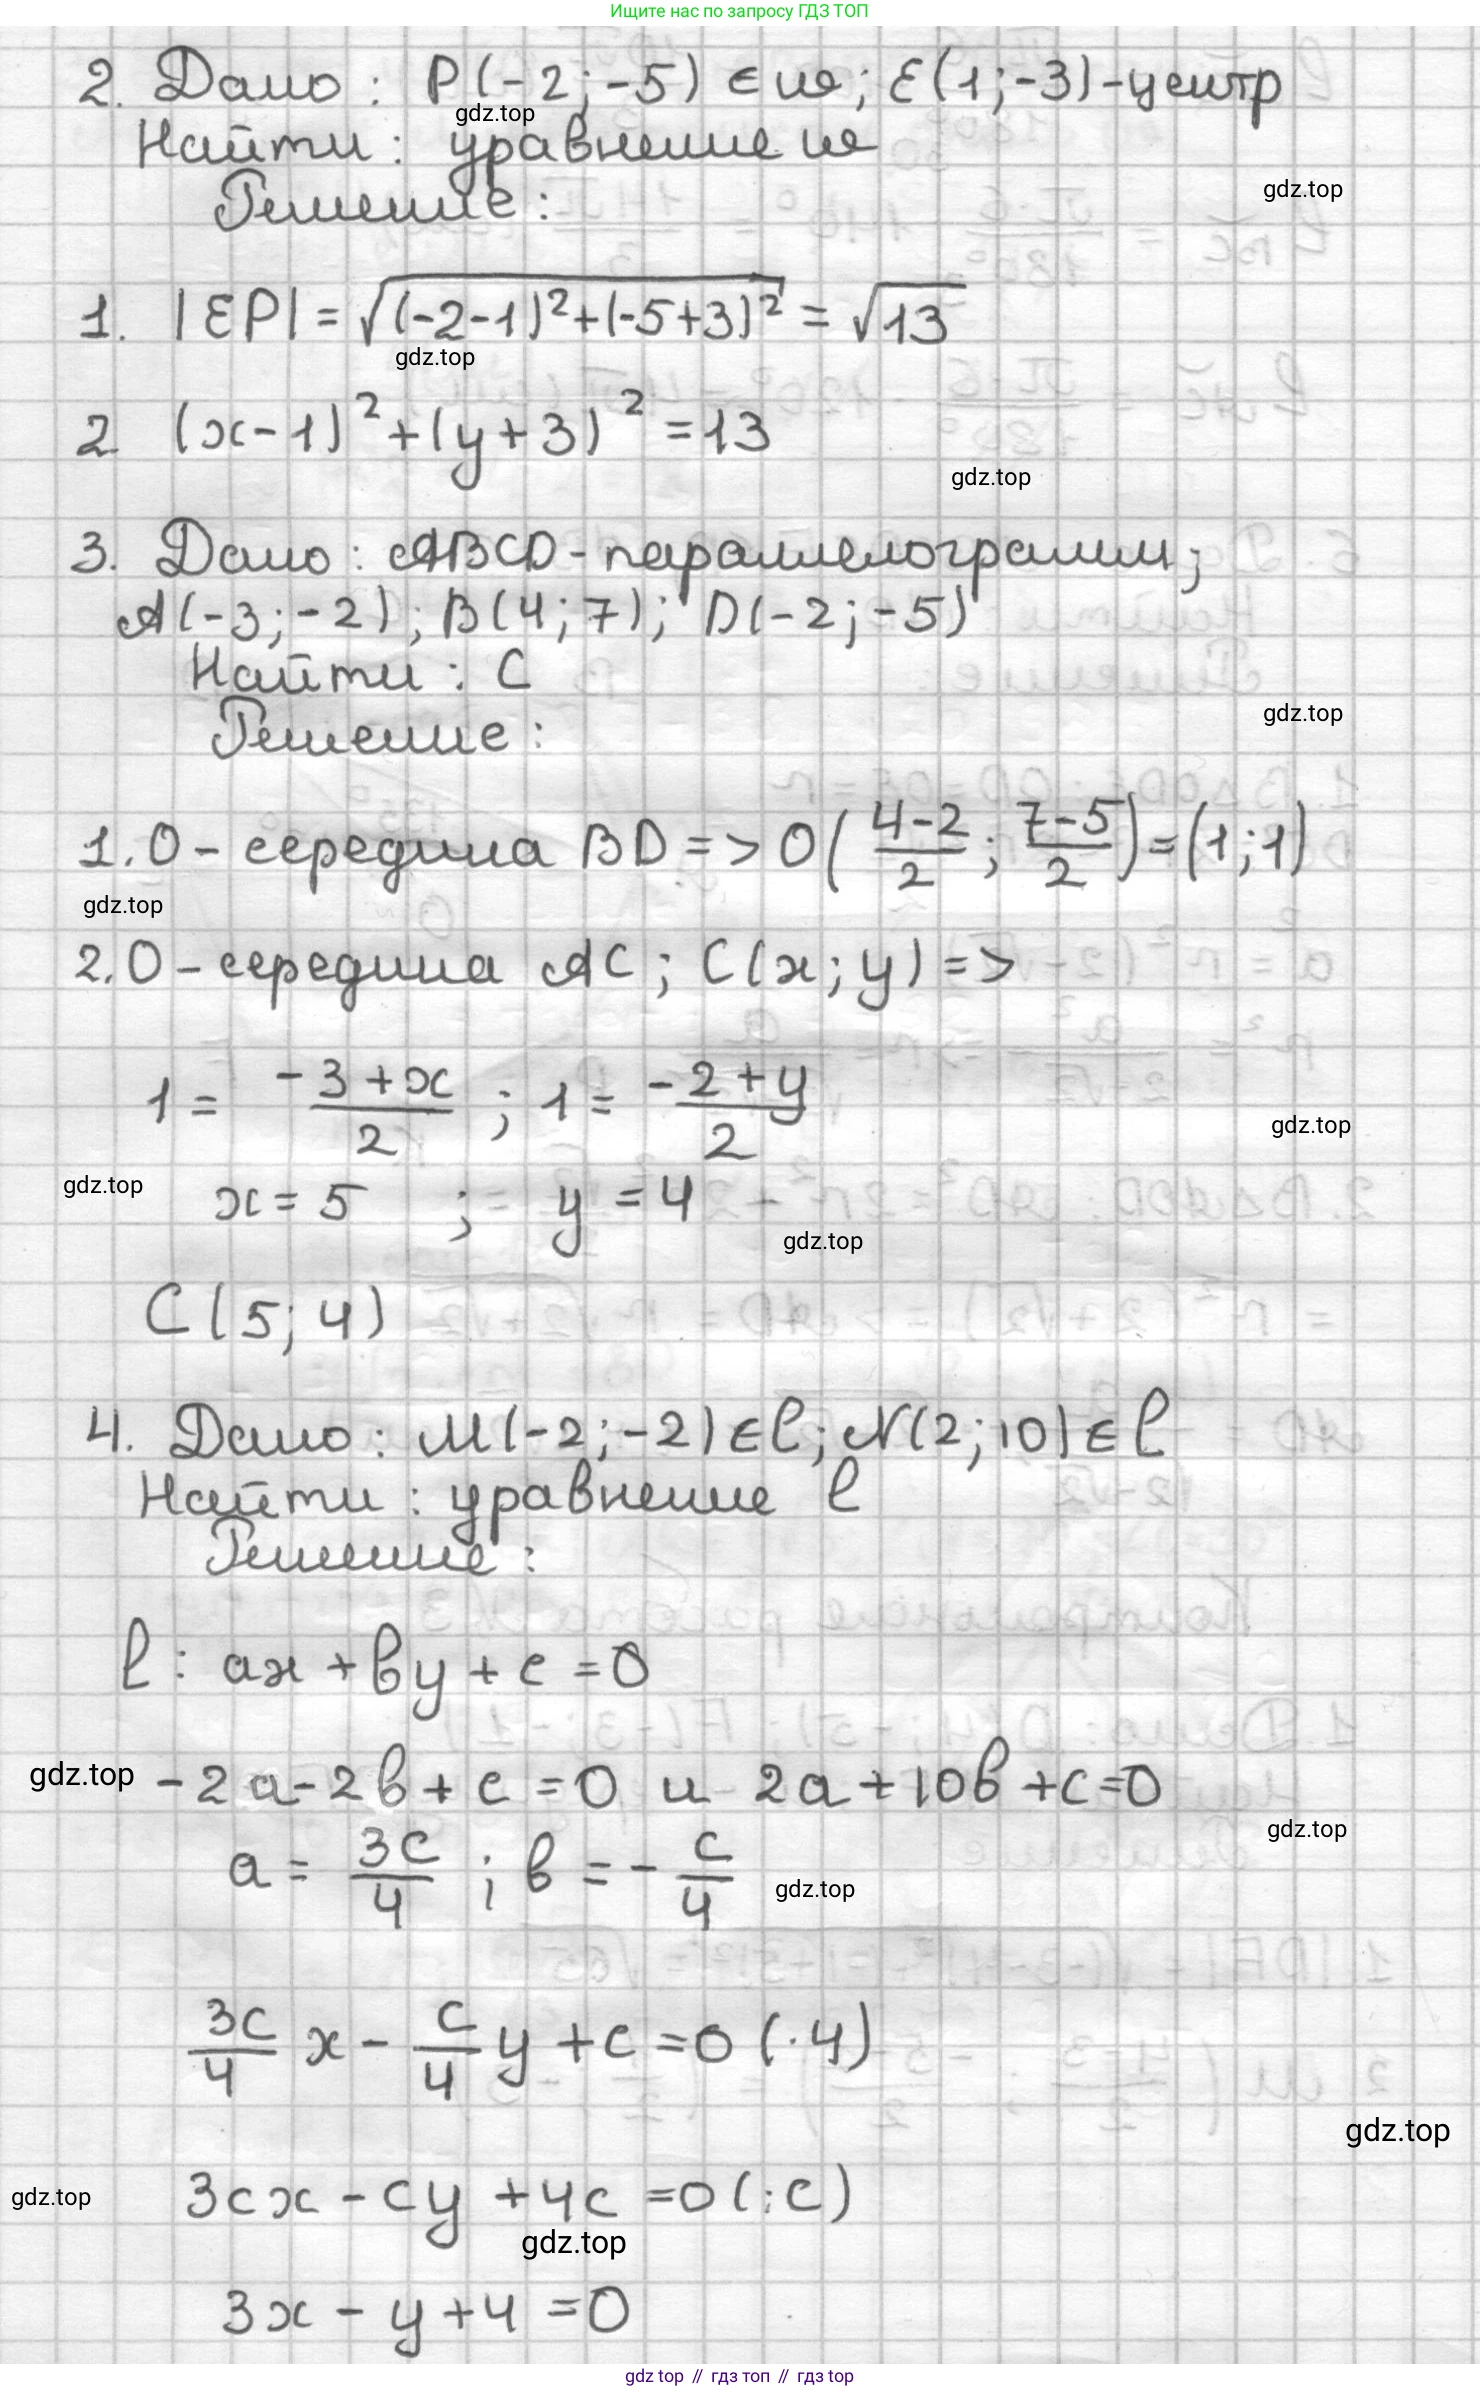 Ищите нас по запросу ГДЗ ТОП
2. Дано: P(-2;-5) ∈ ω; E(1;-3)-центр
gdz.top
Найти: уравнение ω
gdz.top
Решение:
1. |EP| = √((-2-1)²+(-5+3)²) = √13
gdz.top
2 (x-1)²+(y+3)²=13
gdz.top
3. Дано: ABCD-параллелограмм;
A(-3;-2); B(4;7); D(-2;-5)
Найти: C
gdz.top
Решение:
1. O - середина BD => O((4-2)/2; (7-5)/2) = (1;1)
gdz.top
2. O - середина AC; C(x;y) =>
1 = (-3+x)/2 ; 1 = (-2+y)/2
gdz.top
gdz.top
x = 5 ; y = 4
gdz.top
C(5;4)
4. Дано: M(-2;-2) ∈ l; N(2;10) ∈ l
Найти: уравнение l
Решение:
l: ax+by+c=0
gdz.top
-2a-2b+c=0 и 2a+10b+c=0
gdz.top
a = 3c/4 ; b = -c/4
gdz.top
3c/4 x - c/4 y + c = 0 (·4)
gdz.top
gdz.top
3cx - cy + 4c = 0 (:c)
gdz.top
3x - y + 4 = 0
gdz top // гдз топ // гдз top